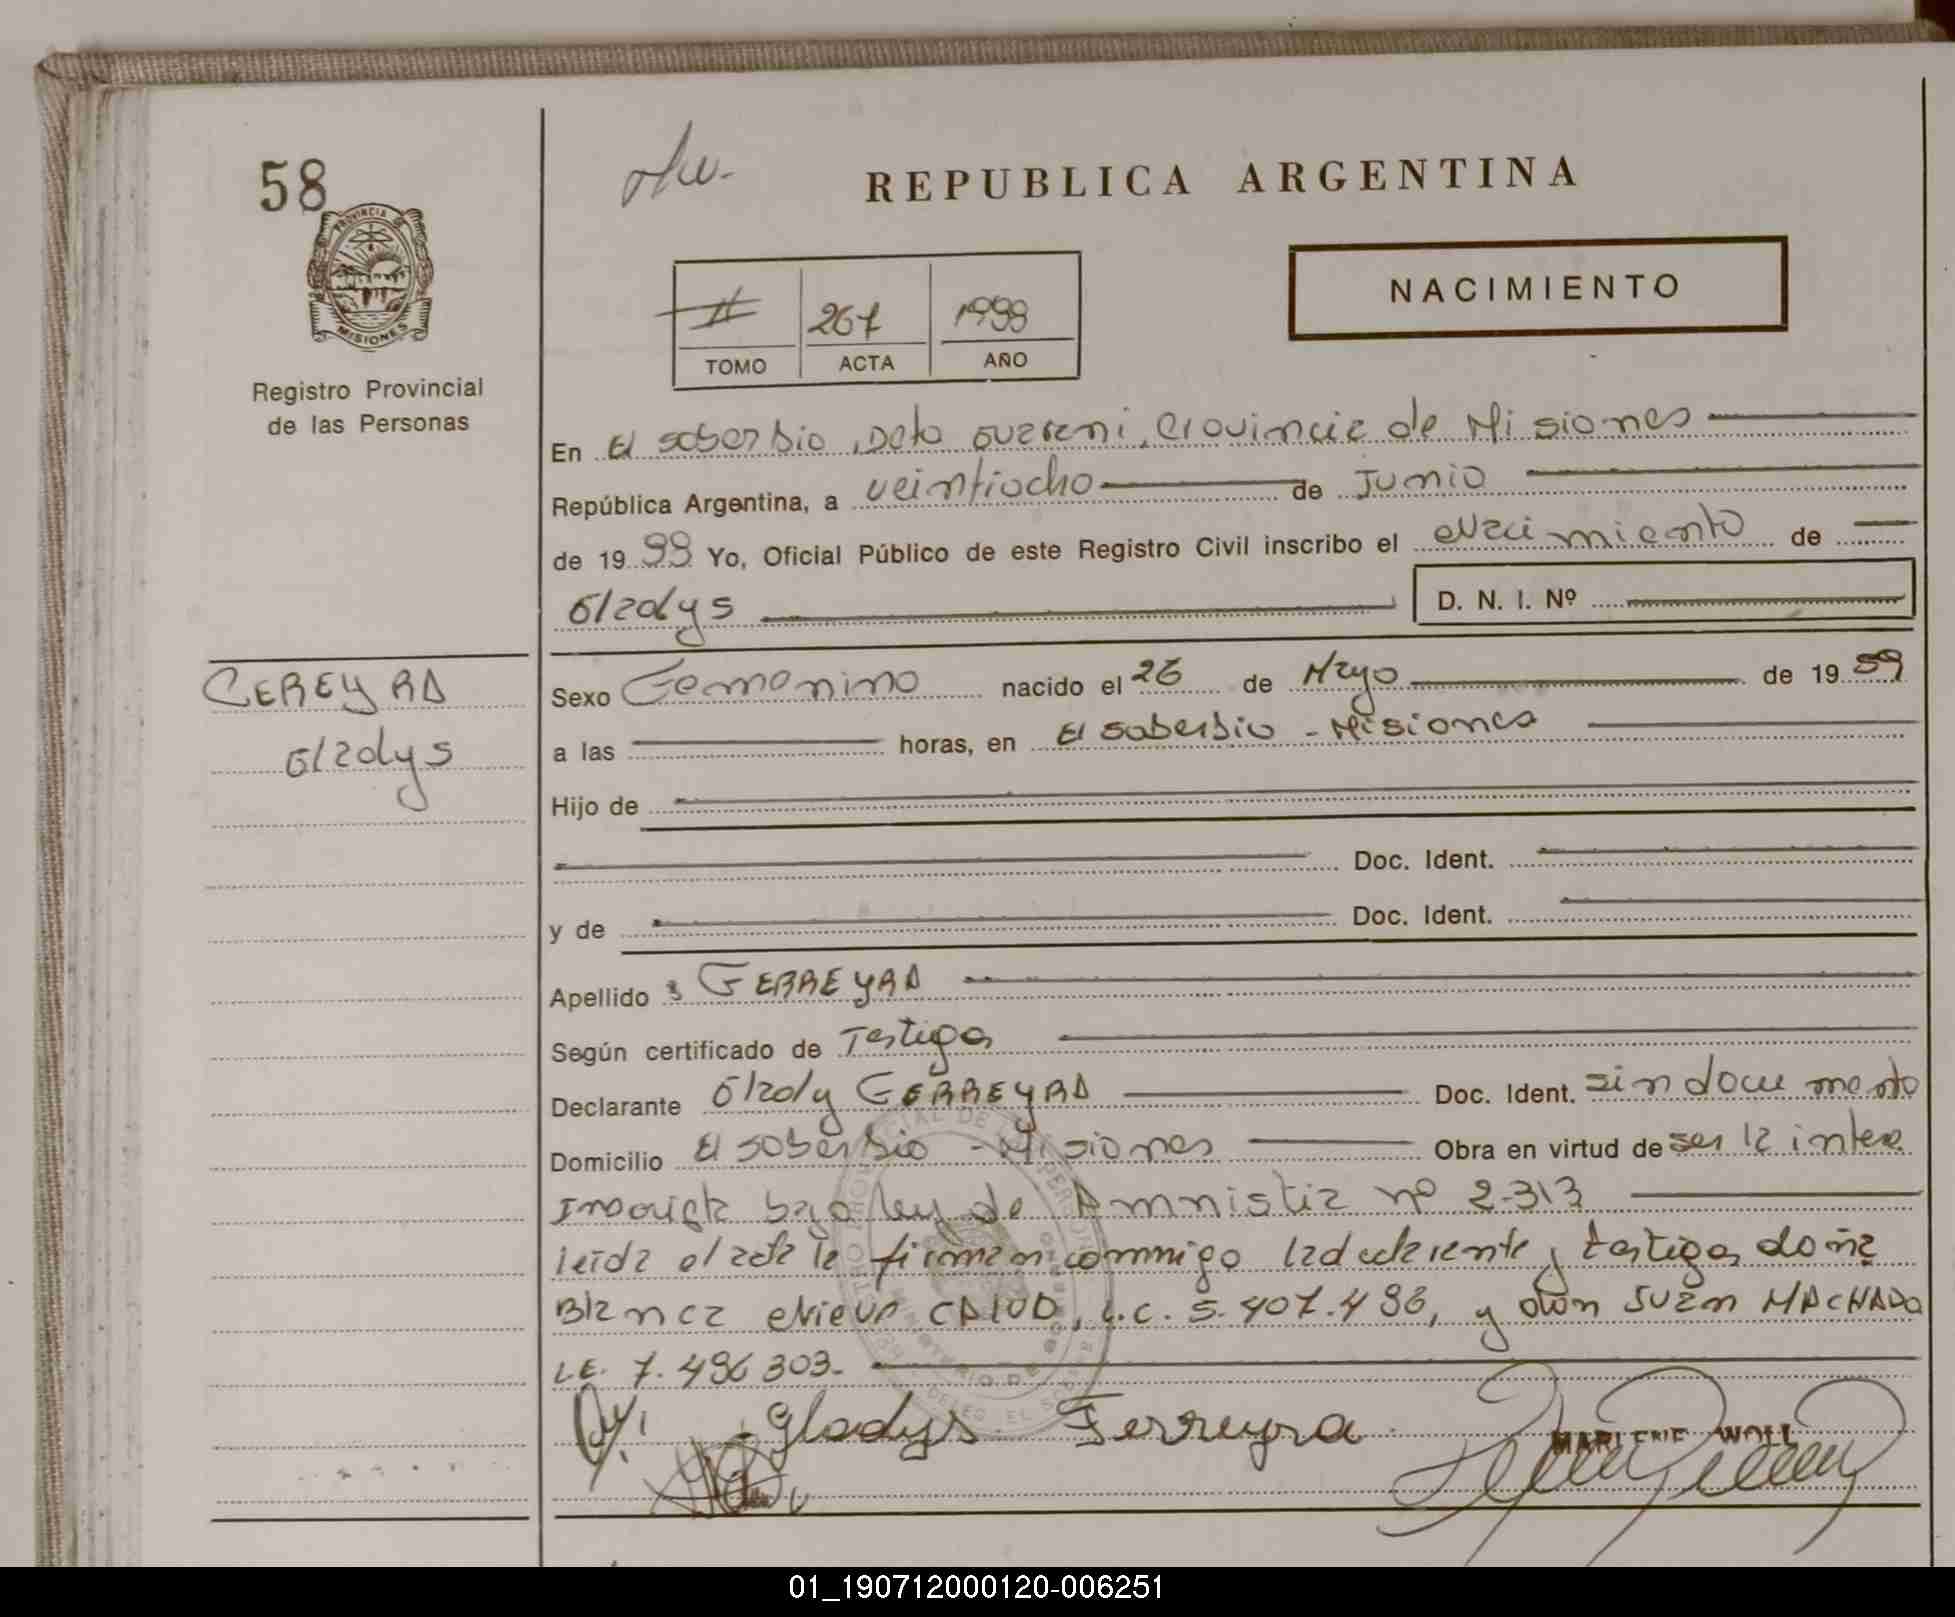 58
PROVINCIA
MISIONES
Registro Provincial
de las Personas
REPUBLICA ARGENTINA
NACIMIENTO
267 1999
TOMO ACTA AÑO
En El soberbio, Dpto Guarani, Provincia de Misiones
República Argentina, a veintiocho de Junio
de 1999 Yo, Oficial Público de este Registro Civil inscribo el Nacimiento de
Gladys D. N. I. Nº
FEREYRA
Gladys
Sexo Femenino nacido el 26 de Mayo de 1959
a las horas, en El soberbio - Misiones
Hijo de
Doc. Ident.
y de Doc. Ident.
Apellido: FERREYRA
Según certificado de Testigos
Declarante Glady FERREYRA Doc. Ident. sin documento
Domicilio El soberbio - Misiones Obra en virtud de ser la intere
Inscripta bajo ley de Amnistia nº 2.313
leida el acta la firman conmigo la declarente y testigos doña
Blanca Nieve L.C. 5.407.496, y don Juan MACHADO
L.E. 7.496 303.-
Gladys Ferreyra
MARLENE WOLL
01_190712000120-006251